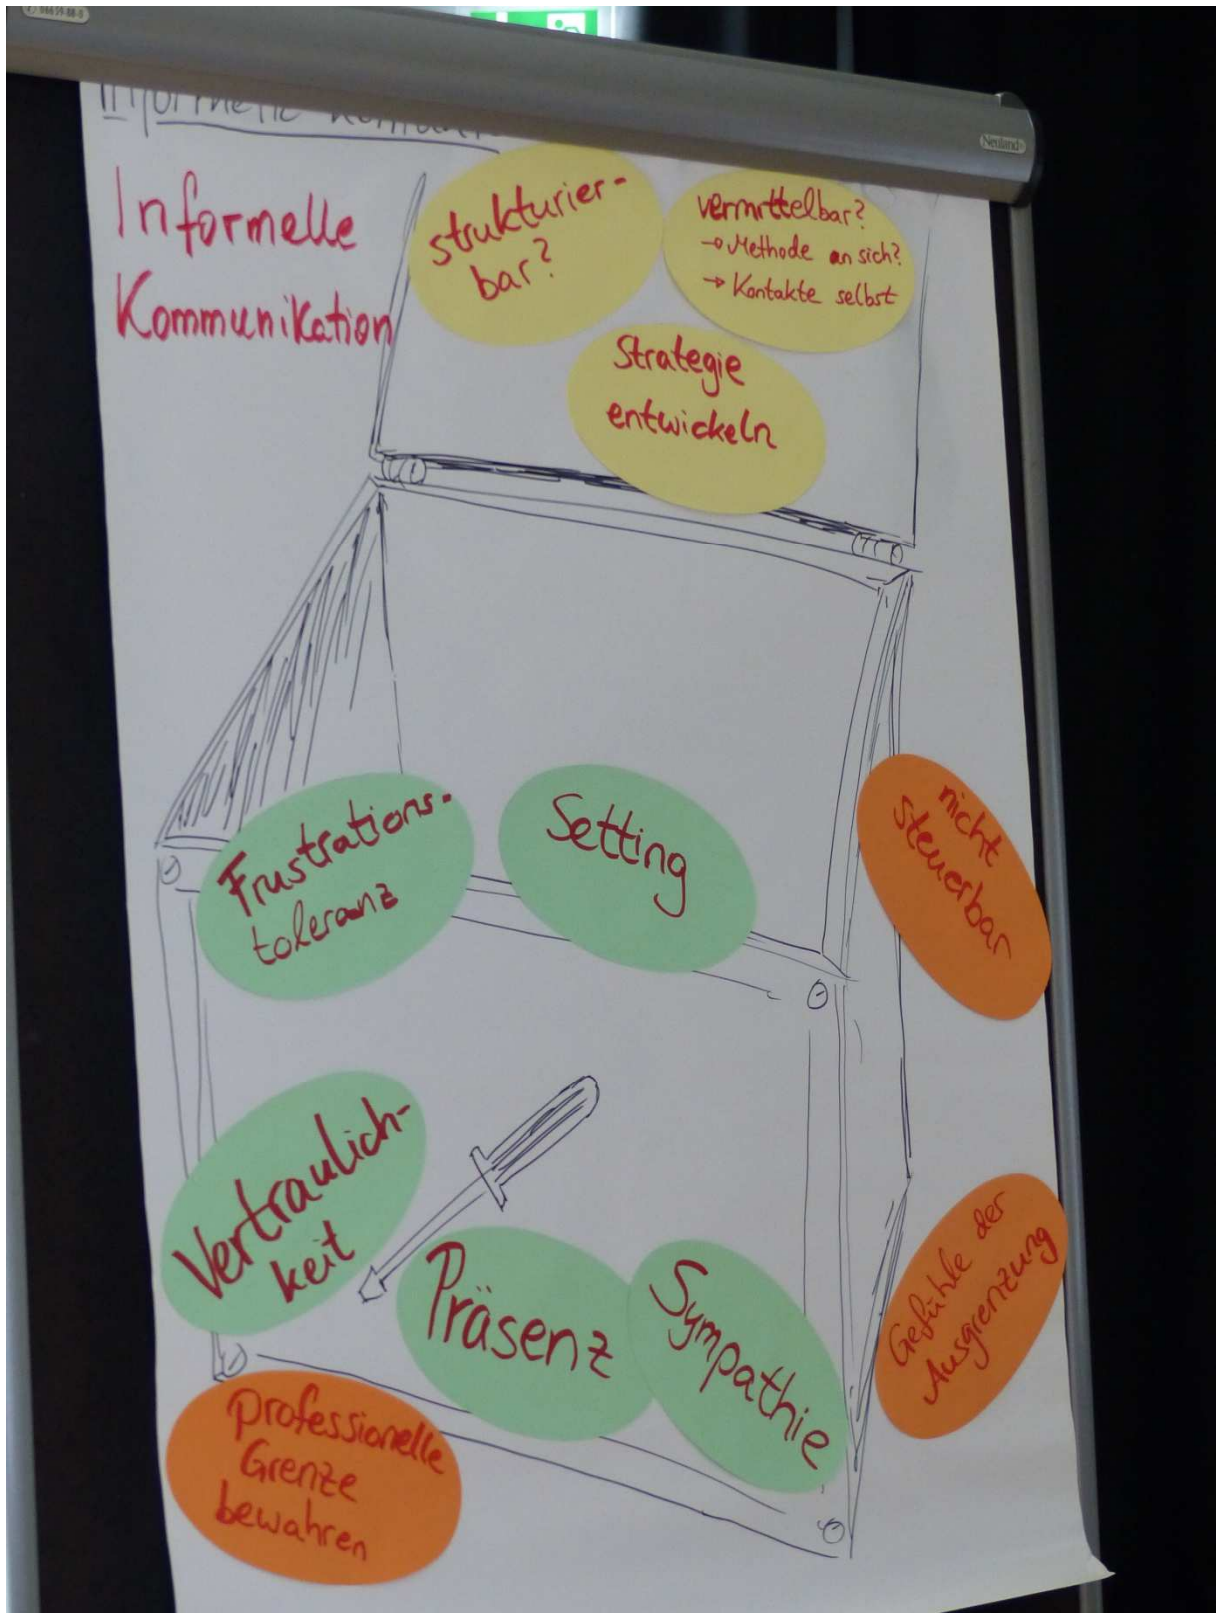 Informelle
Kommunikation
strukturier-
bar?
vermittelbar?
→ Methode an sich?
→ Kontakte selbst
Strategie
entwickeln
Frustrations-
toleranz
Setting
nicht
steuerbar
Vertraulich-
keit
Präsenz
Sympathie
Gefühle der
Ausgrenzung
professionelle
Grenze
bewahren
Neuland